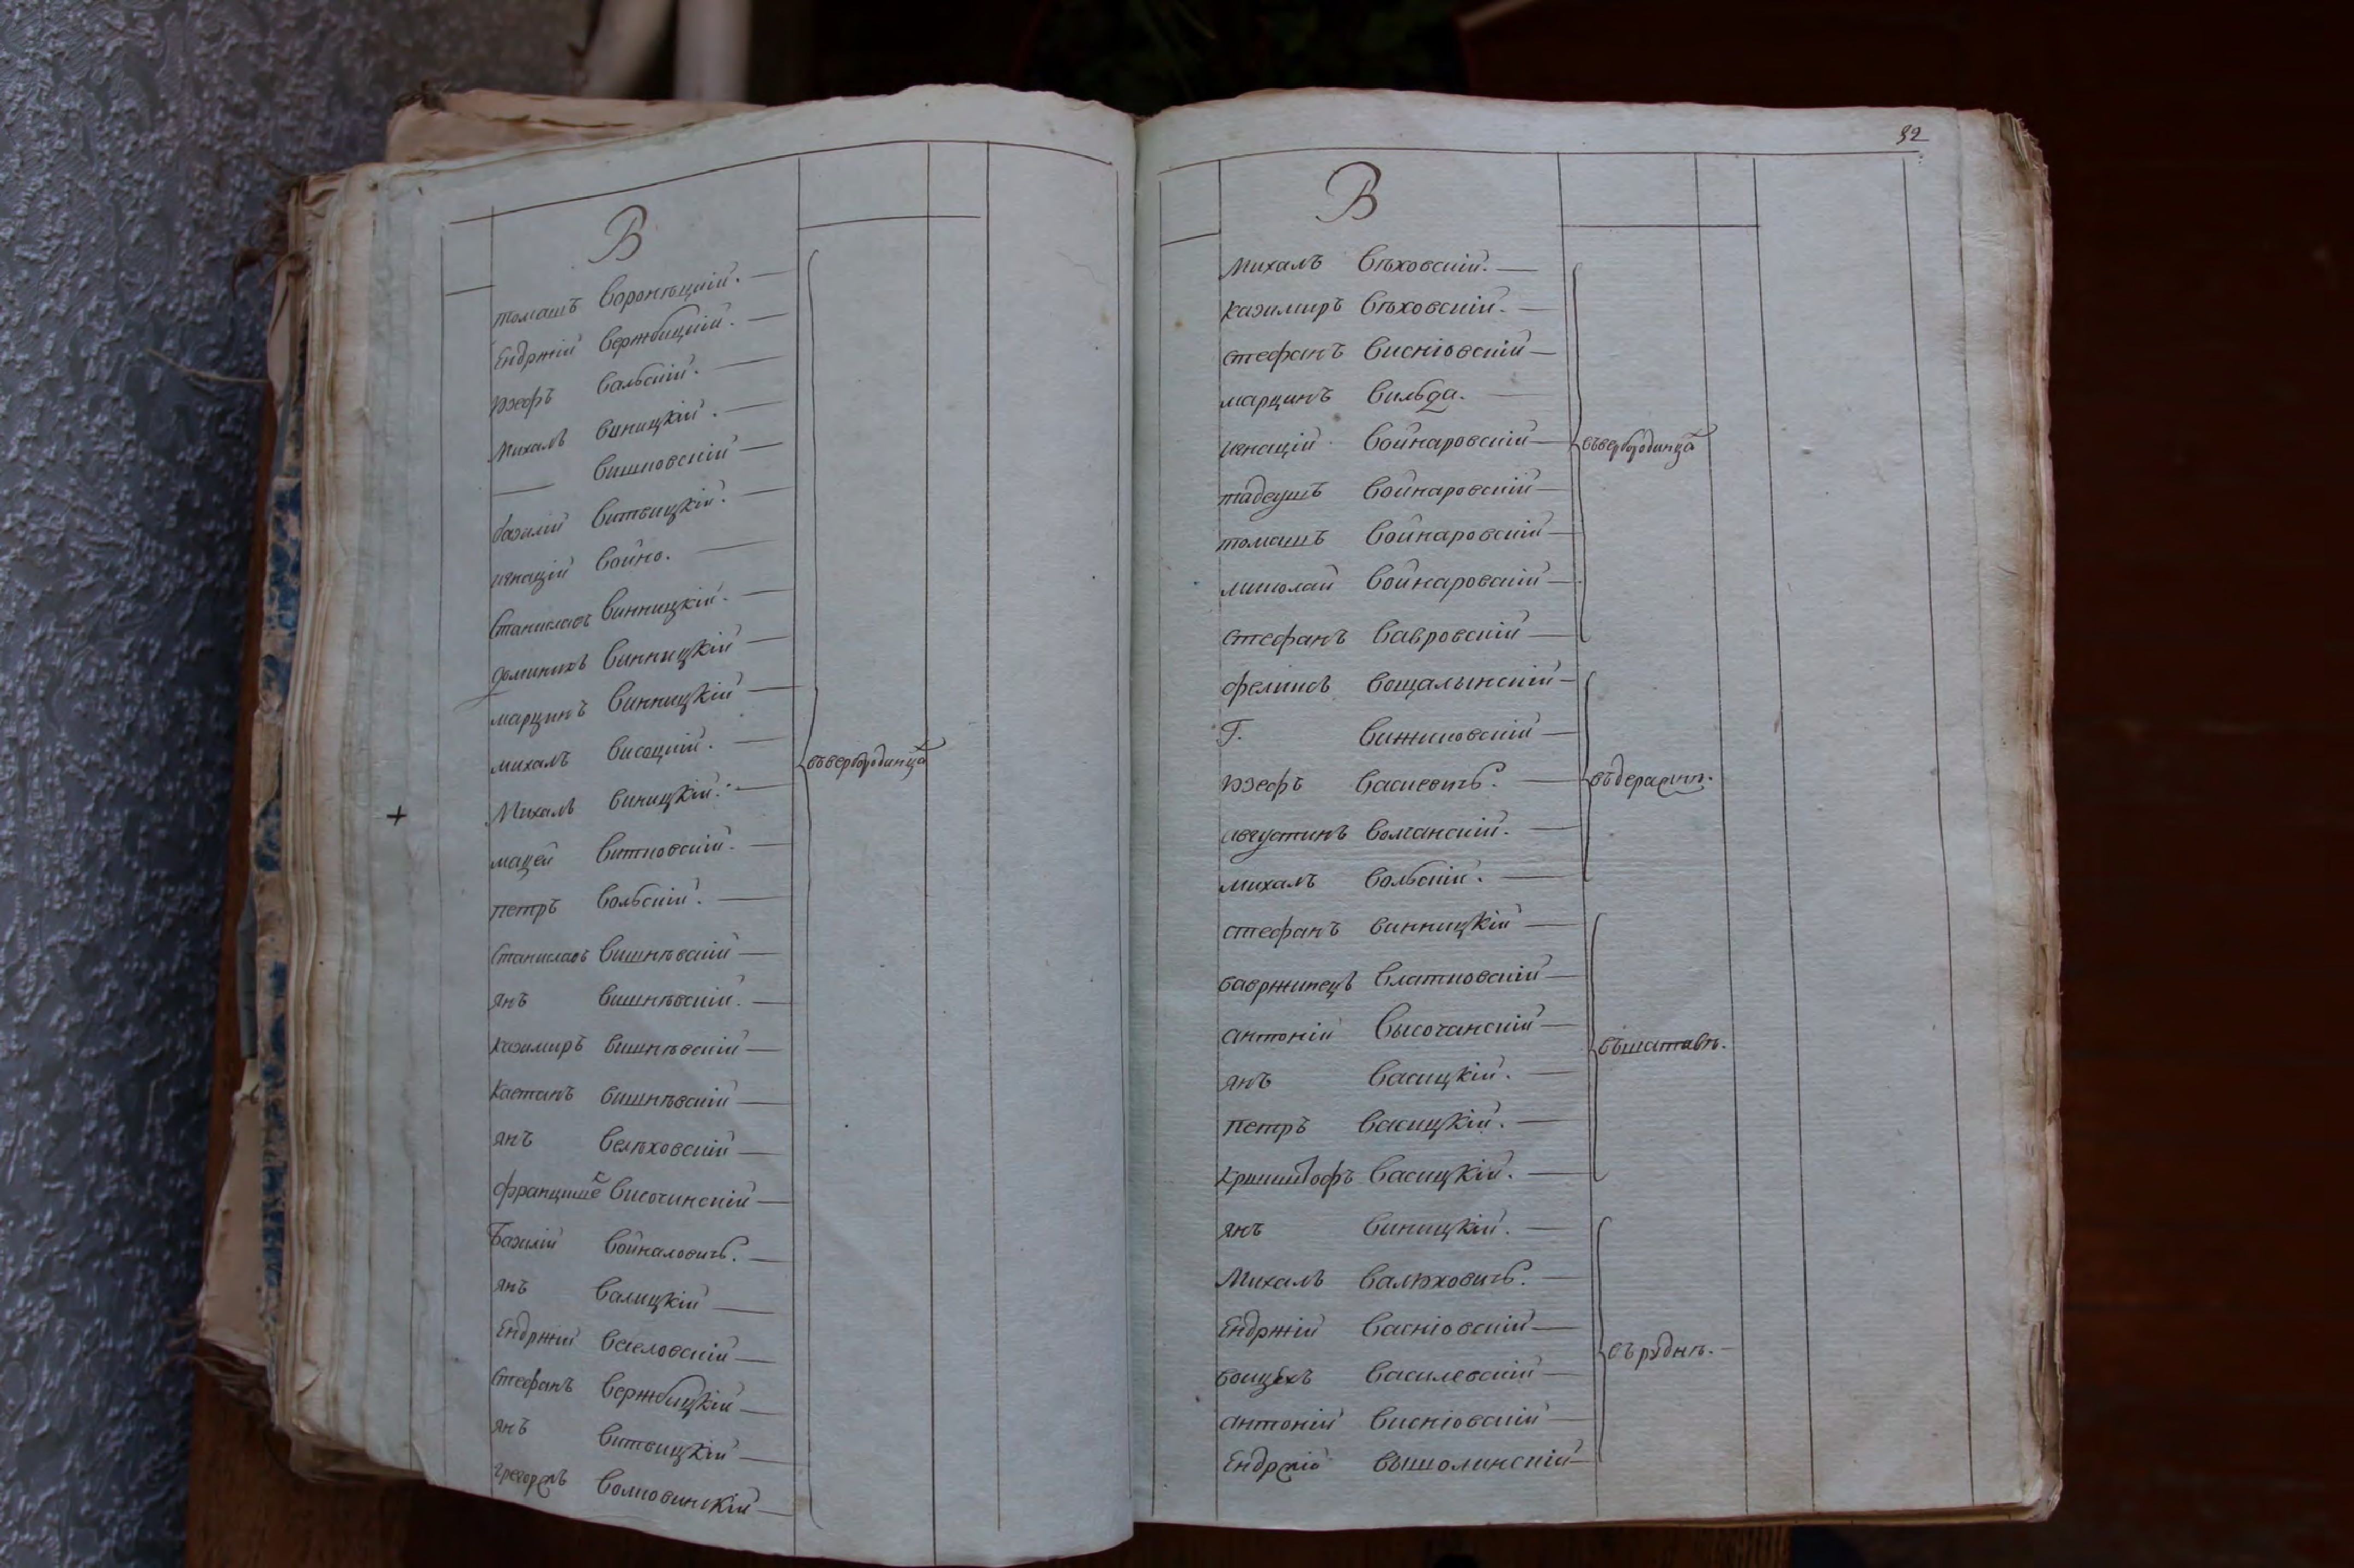 В
томашъ Воронѣцкій.
Ендржій Вержбицкій.
Юзефъ Вальскій.
Михалъ Виницкій.
Вишковскій
базилій Витвицкій.
игнацій Война.
Станиславъ Винницкій.
доминикъ Винницкій
марцинъ Винницкій
михалъ Висоцкій.
въвербородинцахъ
Михалъ Виницкій.
мацей Витковскій.
петръ Вольскій.
Станиславъ Вишнѣвскій
янъ Вишнѣвскій.
казимиръ Вишнѣвскій
каетанъ Вишнѣвскій
янъ Велѣховскій
францишекъ Височинскій
Базилій Войналовичъ.
янъ Валицкій
Ендржій Веселовскій
Стефанъ Вержбицкій
янъ Витвицкій
грегоржъ Волковинскій
92
В
Михалъ Вѣховскій.
казимиръ Вѣховскій.
стефанъ Висніовскій
марцинъ Вильда.
игнацій Войнаровскій
въвербородинцахъ
тадеушъ Войнаровскій
томашъ Войнаровскій
миколай Войнаровскій
стефанъ Вавровскій
феликсъ Вощалынскій
Г. Вижиковскій
Юзефъ Васкевичъ.
въдеражнѣ.
августинъ Волчанскій.
михалъ Вольскій.
стефанъ Винницкій
вавржинецъ Влатковскій
антоній Высочанскій
въшатавѣ.
янъ Васицкій.
петръ Васицкій.
криштофъ Васицкій.
янъ Виницкій.
Михалъ Валѣховичъ.
Ендржій Васніовскій
върудкѣ.
войцѣхъ Василевскій
антоній Висніовскій
Ендржій Вышолинскій